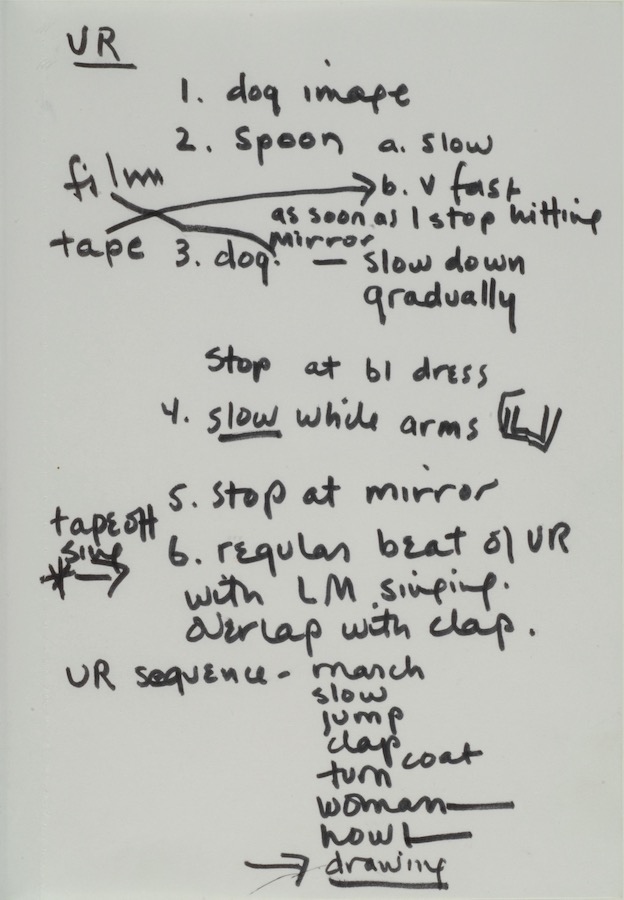 VR
1. dog image
2. spoon a. slow
film
b. v fast
as soon as I stop hitting
mirror
tape 3. dog. — slow down
gradually
Stop at bl dress
4. slow while arms
5. stop at mirror
tape off
sing
6. regular beat of VR
with LM singing.
overlap with clap.
VR sequence - march
slow
jump
clap
turn coat
woman —
howl —
→ drawing